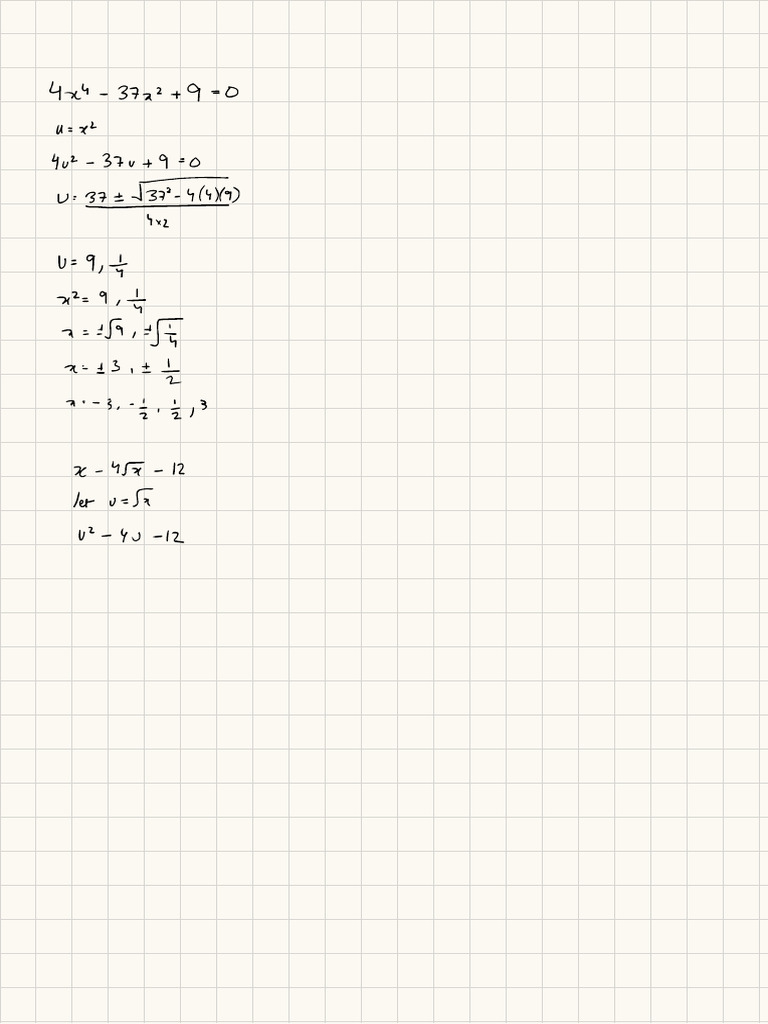 4x⁴ - 37x² + 9 = 0
u = x²
4u² - 37u + 9 = 0
u = 37 ± √37² - 4(4)(9)
4×2
U = 9, 1/4
x² = 9, 1/4
x = ±√9, ±√1/4
x = ± 3, ± 1/2
x = -3, -1/2, 1/2, 3
x - 4√x - 12
let u = √x
u² - 4u - 12